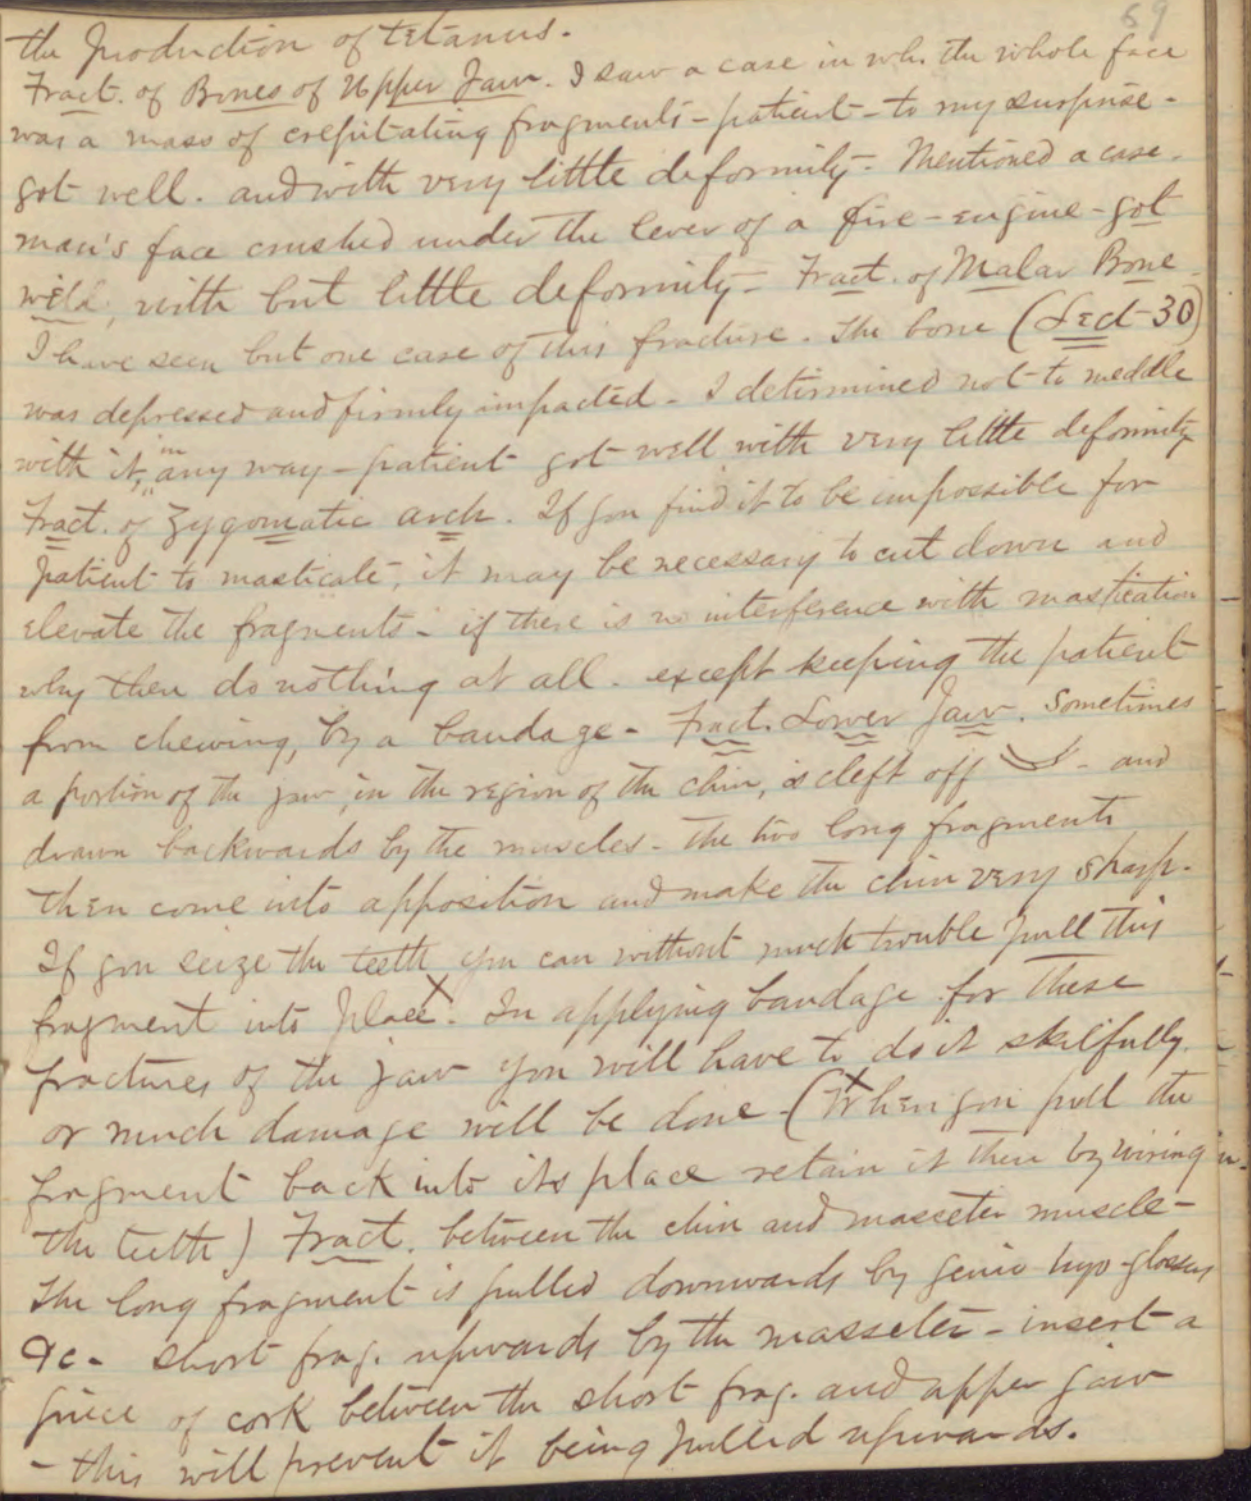 69
the production of tetanus.
Fract. of Bones of Upper Jaw. I saw a case in wh. the whole face
was a mass of crepitating fragments - patient - to my surprise -
got well. and with very little deformity - Mentioned a case.
man's face crushed under the lever of a fire-engine - got
well, with but little deformity - Fract. of Malar Bone
I have seen but one case of this fracture. The bone (Lect-30)
was depressed and firmly impacted - I determined not to meddle
with it, in any way - patient got well with very little deformity
Fract. of Zygomatic arch. If you find it to be impossible for
patient to masticate, it may be necessary to cut down and
elevate the fragments - if there is no interference with mastication
why then do nothing at all - except keeping the patient
from chewing, by a bandage - Fract. Lower Jaw. Sometimes
a portion of the jaw, in the region of the chin, is cleft off - and
drawn backwards by the muscles - The two long fragments
then come into apposition and make the chin very sharp.
If you seize the teeth you can without much trouble pull this
fragment into place x. In applying bandage for these
fractures of the jaw you will have to do it skilfully
or much damage will be done - (x When you pull the
fragment back into its place retain it there by wiring
the teeth) Fract. between the chin and masseter muscle -
The long fragment is pulled downwards by genio-hyo-glossus
&c - short frag. upwards by the masseter - insert a
piece of cork between the short frag. and upper jaw
- this will prevent it being pulled upwards.